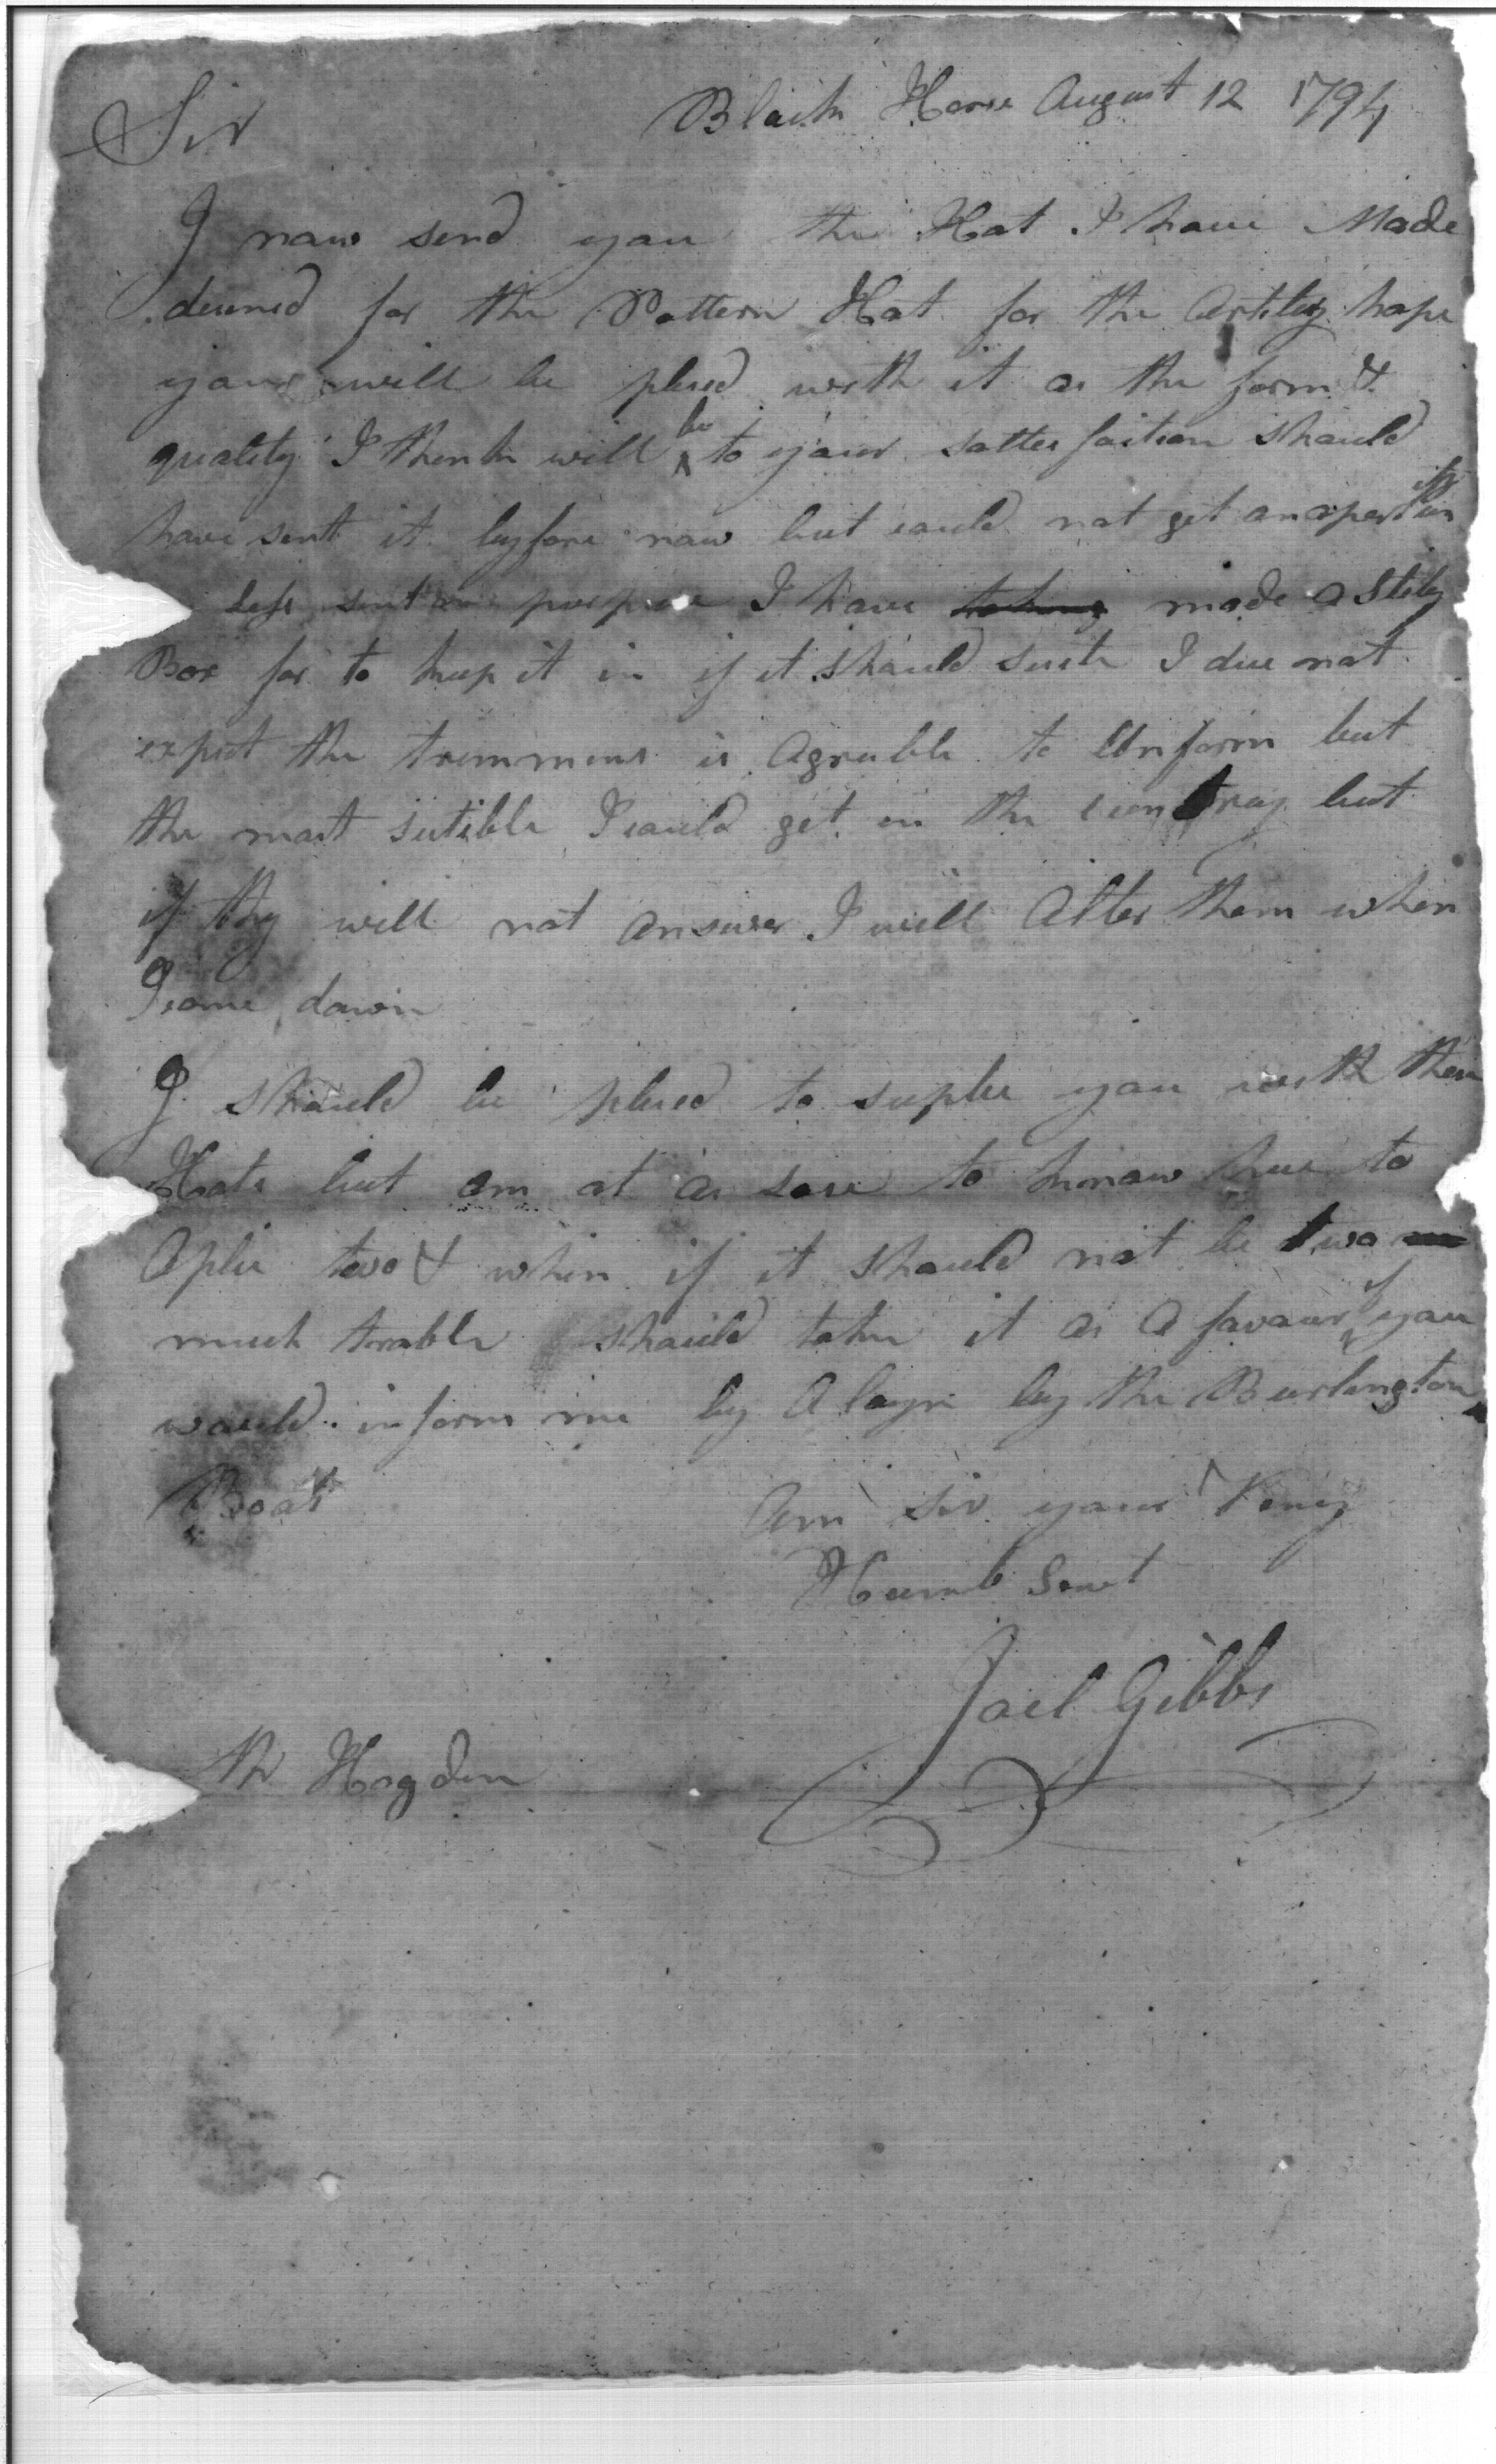 Black Horse August 12 1794
Sir
I now send you the Hat I have Made
desined for the Pattern Hat for the Artilery hope
you will be plesed with it as the form &
quality I think will be to your sattesfaction should
have sent it byfore now but could not get an opertunity
less sent on purpose I have made a
Box for to keep it in if it should sute I due not
expect the trimmins is Agreeble to Uniform but
the most sutible I could get in the contray but
if they will not answer I will Alter them when
I come down
I should be plesed to suplie you with them
Hats but am at a lose to know hue to
Aplie two & when if it should not be two
much troble should take it as A favour if you
would inform me by A by the Burlington
Boat
Am sir your Very
Humb Servt
Joel Gibbs
Mr Hogden